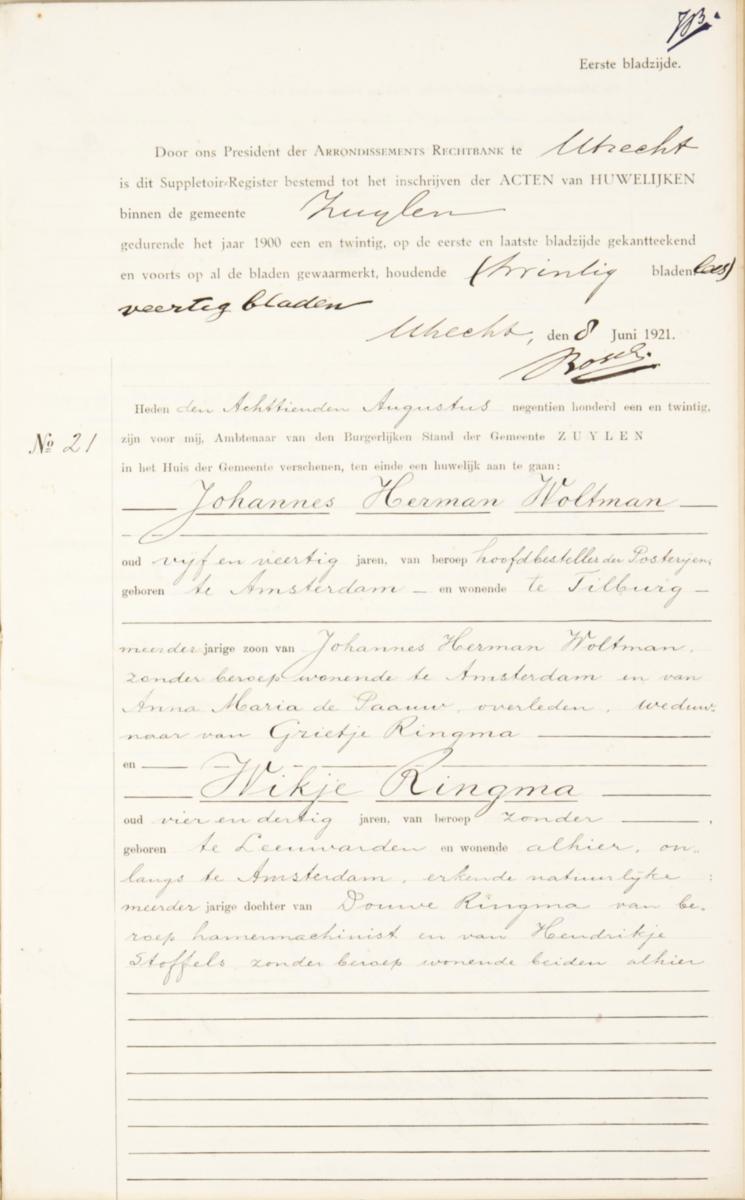 Eerste bladzijde.
Door ons President der ARRONDISSEMENTS RECHTBANK te Utrecht
is dit Suppletoir-Register bestemd tot het inschrijven der ACTEN van HUWELIJKEN
binnen de gemeente Zuylen
gedurende het jaar 1900 een en twintig, op de eerste en laatste bladzijde gekantteekend
en voorts op al de bladen gewaarmerkt, houdende (twintig bladen lees)
veertig bladen
Utrecht, den 8 Juni 1921.
Heden den Achttienden Augustus negentien honderd een en twintig,
No 21
zijn voor mij, Ambtenaar van den Burgerlijken Stand der Gemeente ZUYLEN
in het Huis der Gemeente verschenen, ten einde een huwelijk aan te gaan:
Johannes Herman Woltman
oud vijf en veertig jaren, van beroep hoofdbesteller der Posterijen,
geboren te Amsterdam – en wonende te Tilburg –
meerder jarige zoon van Johannes Herman Woltman,
zonder beroep wonende te Amsterdam en van
Anna Maria de Paauw, overleden, weduw-
naar van Grietje Ringma
en
Wikje Ringma
oud vier en dertig jaren, van beroep zonder ,
geboren te Leeuwarden en wonende alhier, on-
langs te Amsterdam, erkende natuurlijke
meerder jarige dochter van Douwe Ringma van be-
roep hamermachinist en van Hendrikje
Stoffels zonder beroep wonende beiden alhier